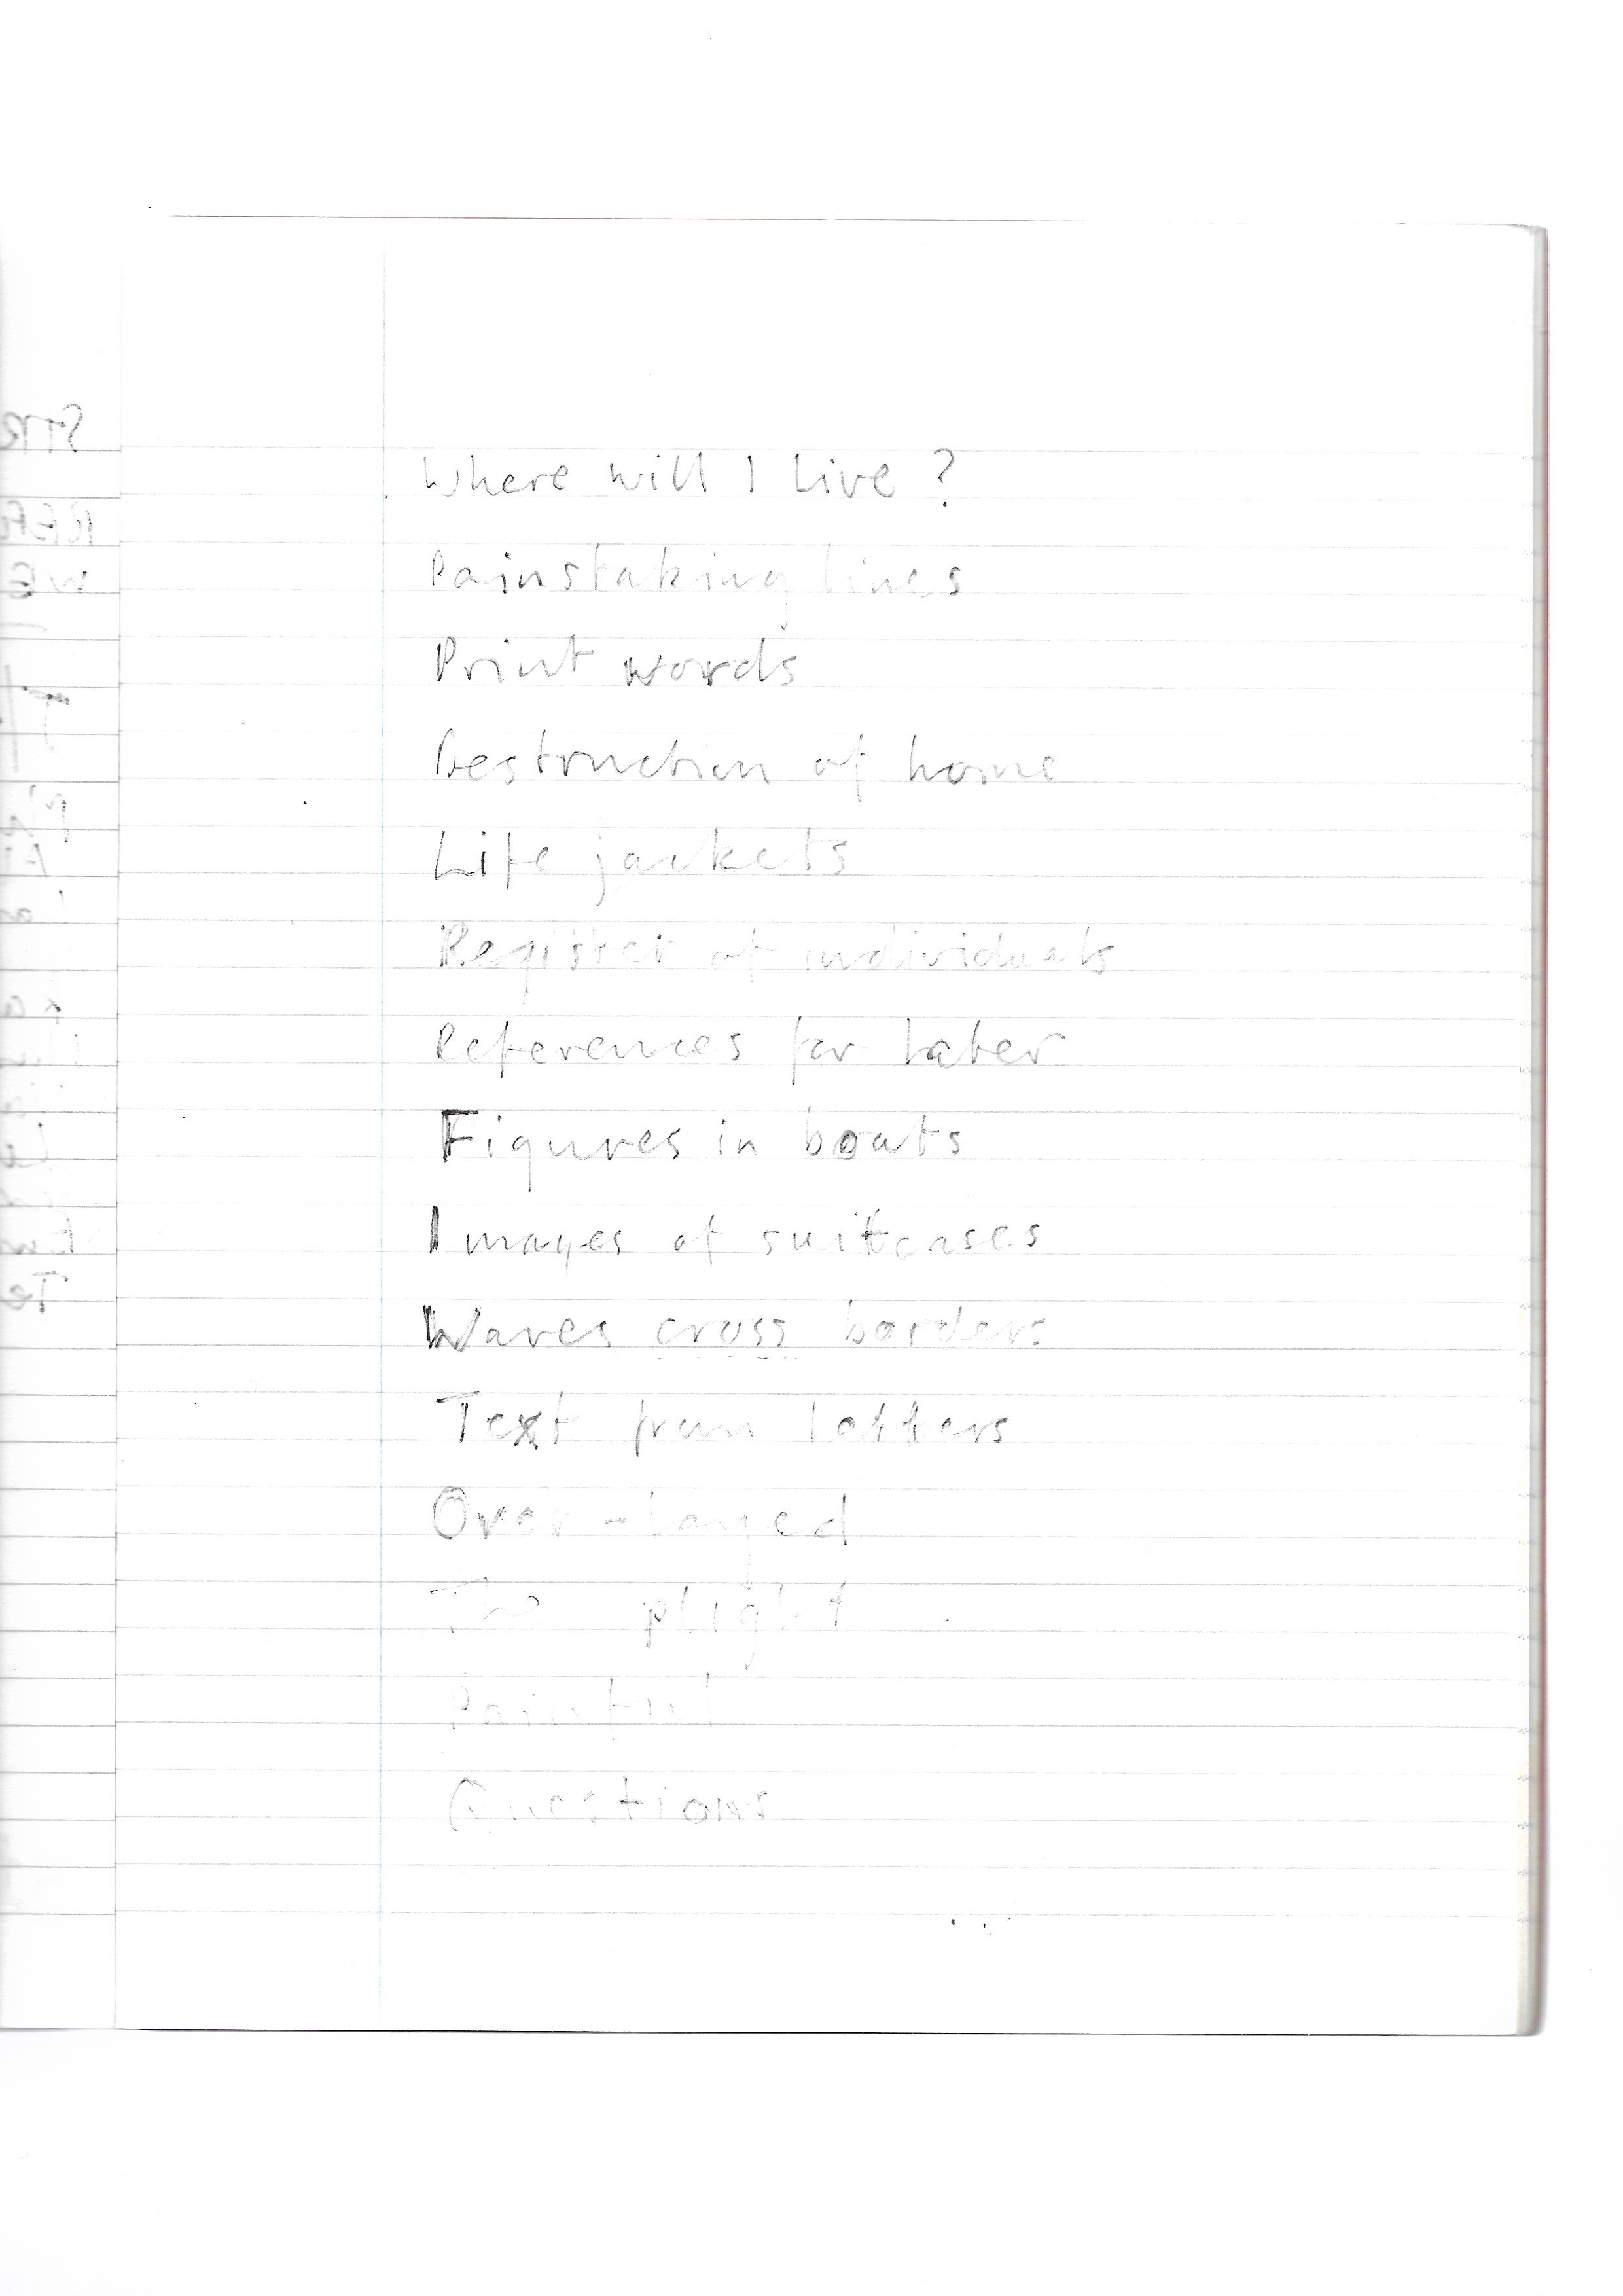 Where will I live?
Painstaking lines
Print words
Destruction of home
Life jackets
Register of individuals
References for later
Figures in boats
Images of suitcases
Waves cross borders
Text from letters
Over-layed
The plight
Painful
Questions